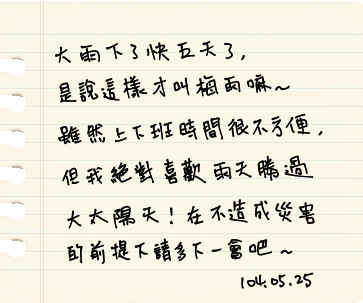 大雨下了快五天了,
是說這樣才叫梅雨嘛~
雖然上下班時間很不方便,
但我絕對喜歡雨天勝過
大太陽天!在不造成災害
的前提下請多下一會吧~
104.05.25